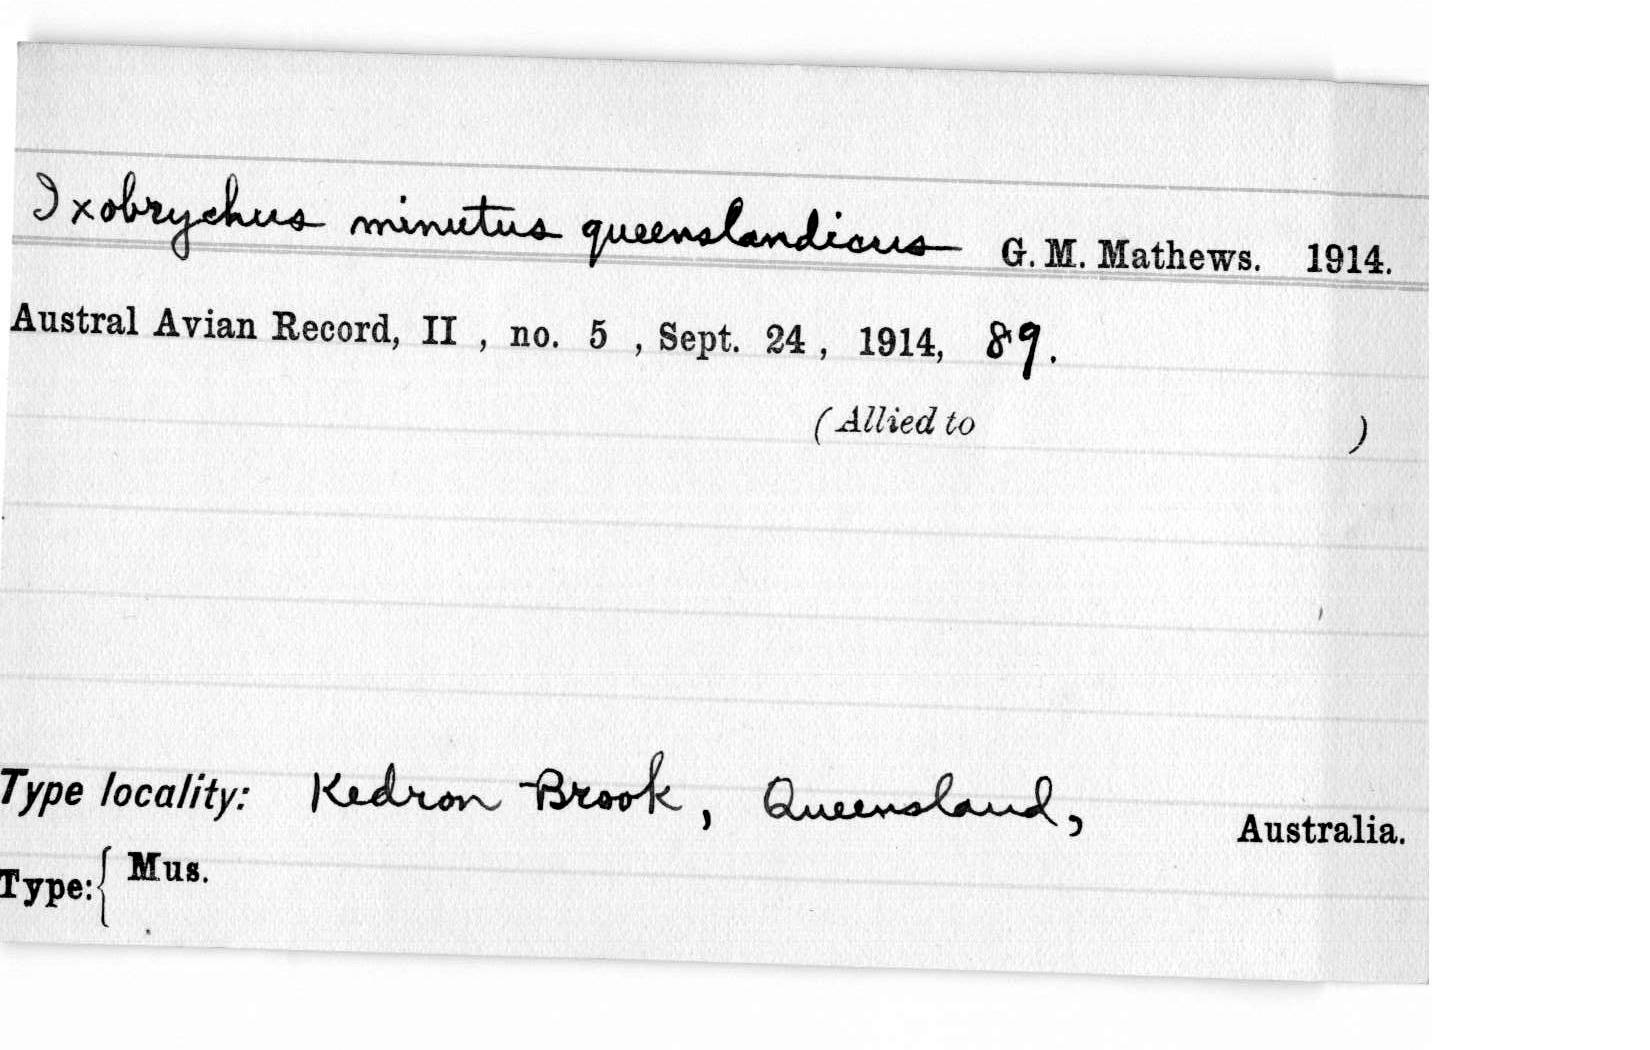 Ixobrychus minutus queenslandicus G. M. Mathews. 1914.
Austral Avian Record, II , no. 5 , Sept. 24 , 1914, 89.
(Allied to )
Type locality: Kedron Brook, Queensland, Australia.
Type: { Mus.